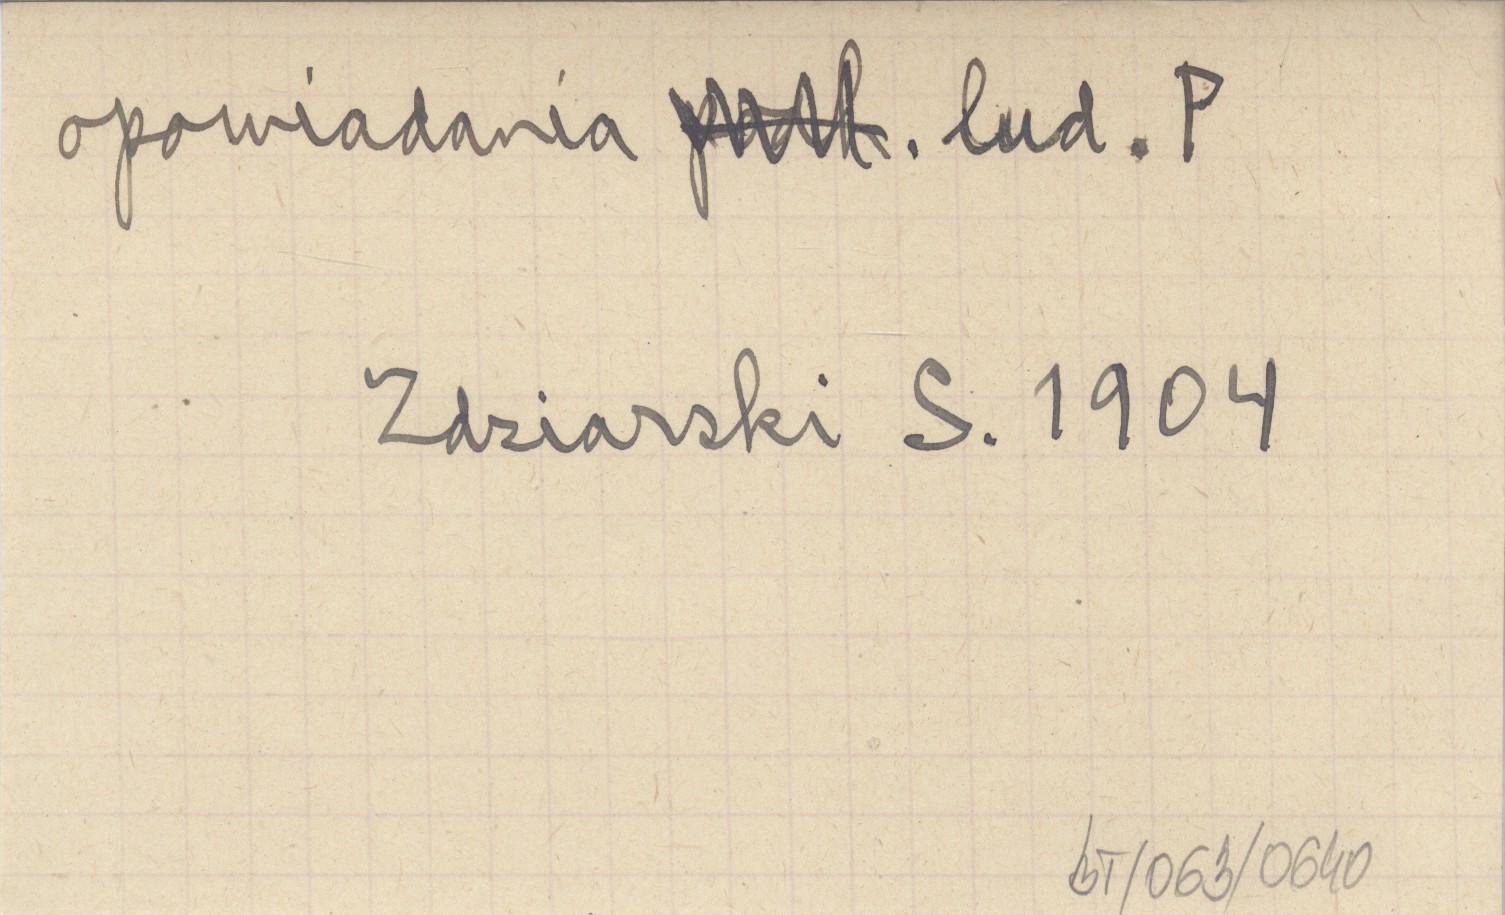 opowiadania . lud. P
Zdziarski S. 1904
BT/063/0640